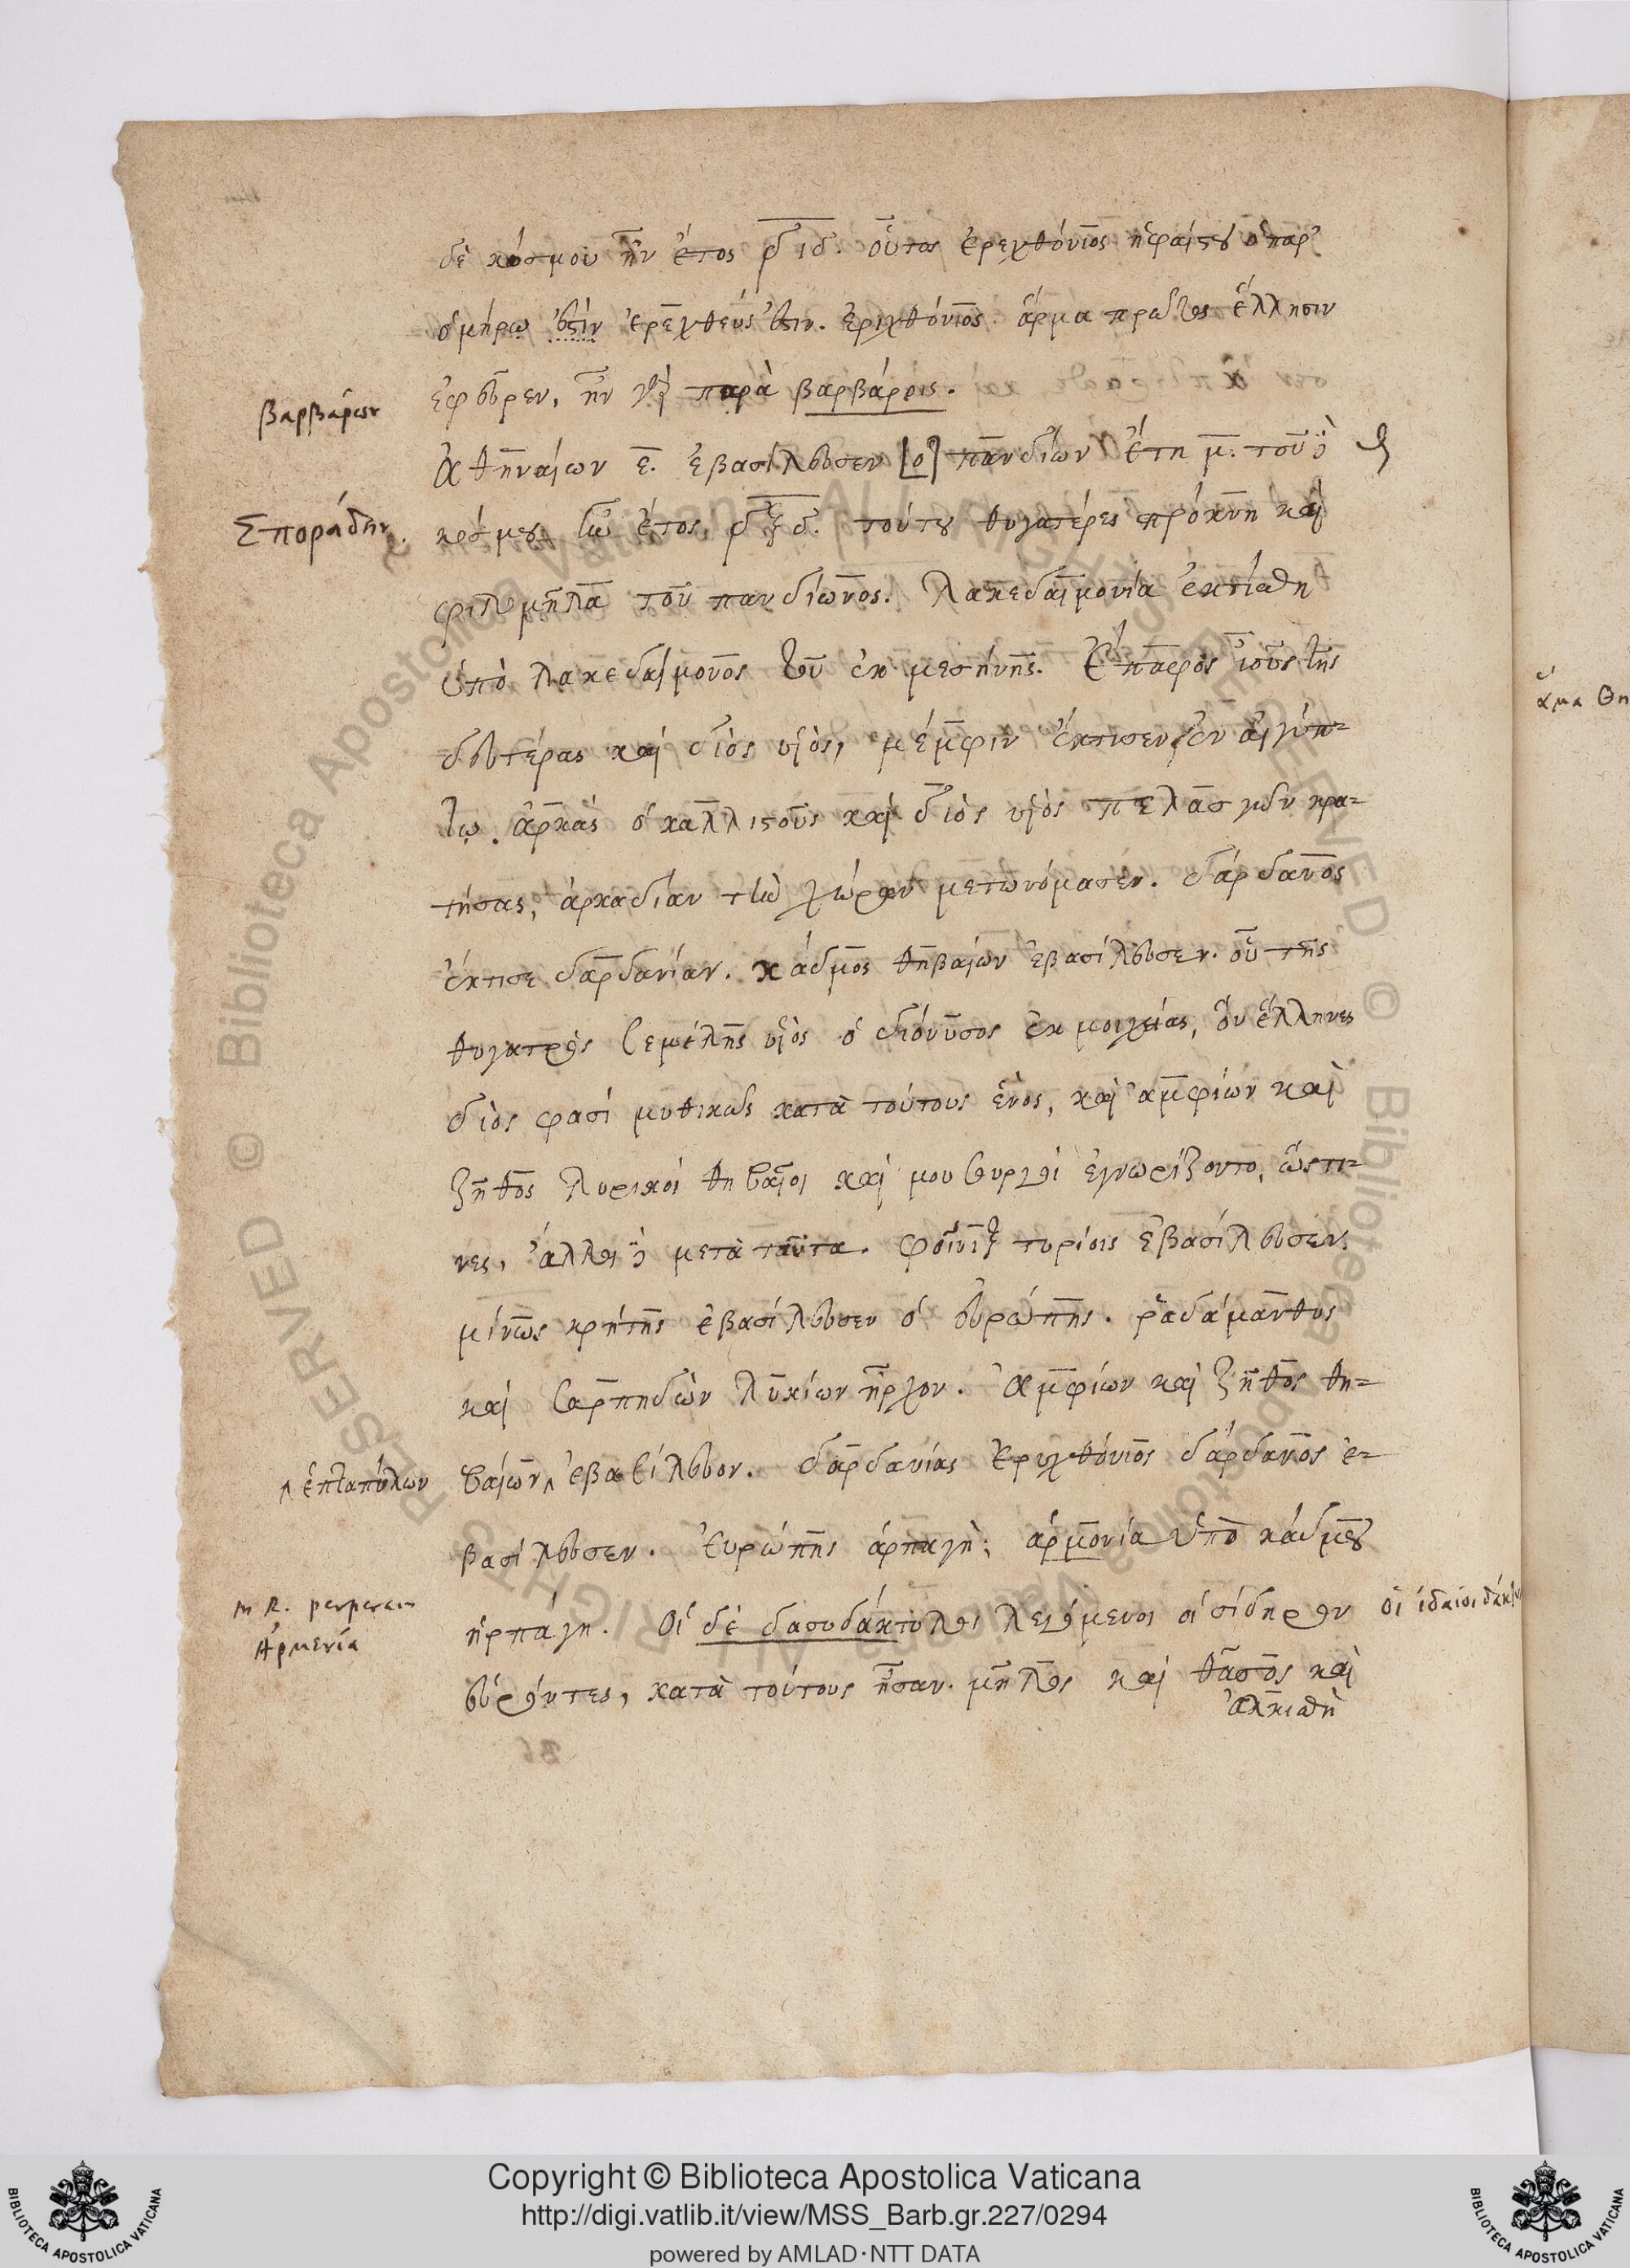 δὲ κόσμου ἦν ἔτος ͵δ ιδ. οὗτος ἐρεχθόνιος ἡφαίστου ὁ παρ'
ὁμήρω ἐστὶν ἐρεχθεύς ἐστιν. ἐριχθόνιος ἅρμα πρῶτος ἕλλησιν
ἐφεῦρεν, ἦν παρὰ βαρβάροις.
βαρβάρων
Ἀθηναίων ε. ἐβασίλευσεν [ὁ] πανδίων ἔτη μ. τοῦ δὲ
Σποράδην.
κόσμου ἦν ἔτος, ͵δξδ. τούτου θυγατέρες πρόκνη καὶ
φιλομήλα τοῦ πανδίωνος. λακεδαιμονία ἐκτίσθη
ὑπὸ λακεδαίμονος τοῦ ἐκ μεσήνης. Ἔπαφος ἰοῦς τῆς
δευτέρας καὶ διὸς υἱὸς, μέμφιν ἔκτισεν ἐν αἰγύπ-
τω. ἀρκὰς ὁ καλλιστοῦς καὶ διὸς υἱὸς πελασγῶν κρα-
τήσας, ἀρκαδίαν τὴν χώραν μετωνόμασεν. δάρδανος
ἔκτισε δαρδανίαν. κάδμος θηβαίων ἐβασίλευσεν. οὗ τῆς
θυγατρὸς σεμέλης υἱὸς ὁ διόνυσος ἐκ μοιχείας, ὃν ἕλληνες
διὸς φασὶ μυθικῶς κατὰ τούτους ἑνὸς, καὶ ἀμφίων καὶ
ζῆθος λυρικοὶ θηβαῖοι καὶ μουσουργοὶ ἐγνωρίζοντο, ὥς τι-
νες, ἄλλοι δὲ μετὰ ταῦτα. φοῖνιξ τυρίοις ἐβασίλευσεν
μίνως κρήτης ἐβασίλευσεν ὁ εὐρώπης. ῥαδάμανθυς
καὶ σαρπηδὼν λυκίων ἦρχον. Ἀμφίων καὶ ζῆθος θη-
ἑπταπύλων
βαίων ἐβασίλευον. δαρδανίας ἐριχθόνιος δάρδανος ἐ-
βασίλευσεν. Εὐρώπης ἁρπαγὴ; ἁρμονία ὑπὸ κάδμου
m R. perperam
Ἀρμενία
ἡρπάγη. Οἱ δὲ δασυδάκτυλοι λεγόμενοι οἱ σίδηρον
οἱ ἰδαῖοι δάκτυ
εὑρόντες, κατὰ τούτους ἦσαν. μῆλος καὶ θάσος καὶ
ἀλκισθὴ
ἅμα Θη